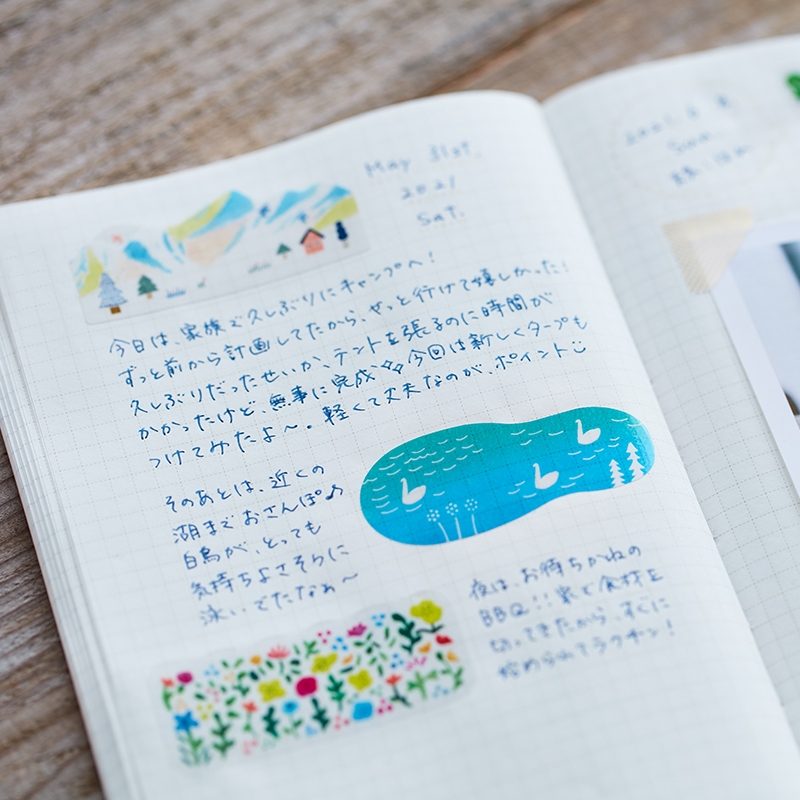 May 31st.
2021
Sat.
今日は、家族で久しぶりにキャンプへ!
ずっと前から計画してたから、やっと行けて嬉しかった!
久しぶりだったせいか、テントを張るのに時間が
かかったけど、無事に完成 今回は新しくタープも
つけてみたよ〜。軽くて丈夫なのが、ポイント
そのあとは、近くの
湖までおさんぽ♪
白鳥が、とっても
気持ちよさそうに
泳いでたなぁ〜
夜は、お待ちかねの
BBQ!!家で食材を
切ってきたから、すぐに
始められてラクチン!